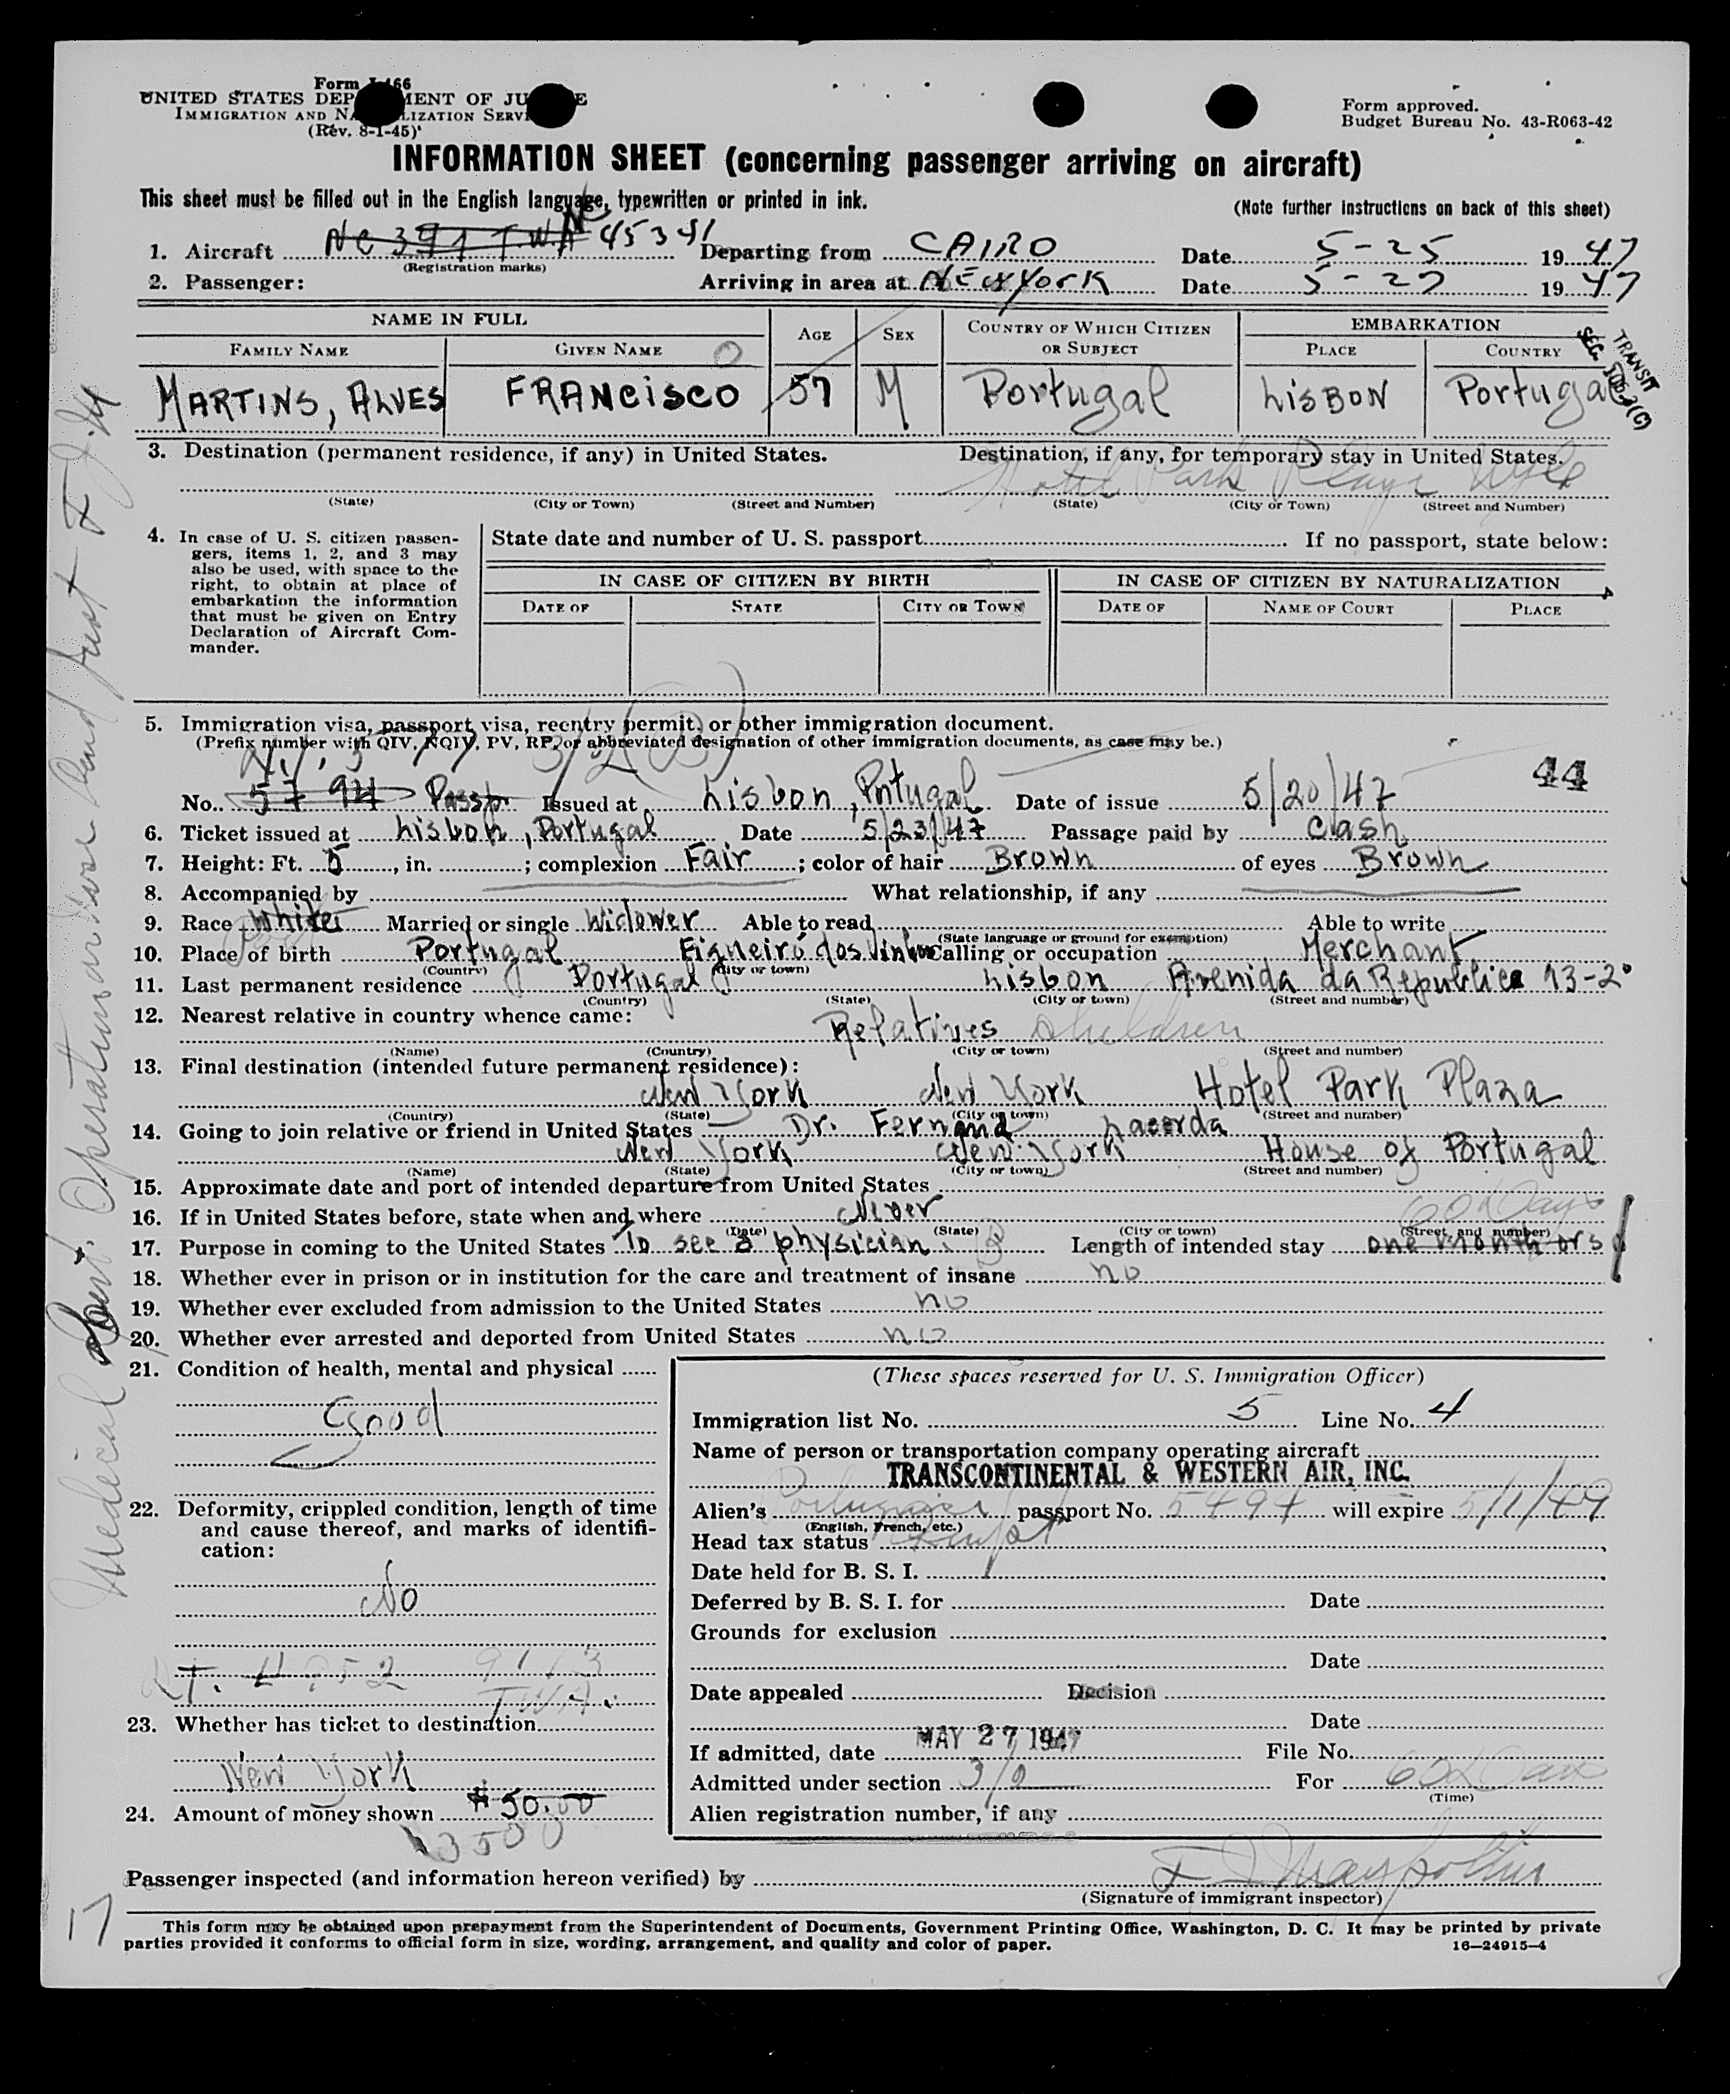 Form I-466
UNITED STATES DEPARTMENT OF JUSTICE
IMMIGRATION AND NATURALIZATION SERVICE
(Rev. 8-1-45)
Form approved.
Budget Bureau No. 43-R063-42
INFORMATION SHEET (concerning passenger arriving on aircraft)
This sheet must be filled out in the English language, typewritten or printed in ink.
(Note further instructions on back of this sheet)
1. Aircraft NC 391 T.W.A NC 45341 Departing from CAIRO Date 5-25 1947
(Registration marks)
2. Passenger: Arriving in area at NEW YORK Date 5-27 1947
NAME IN FULL AGE SEX COUNTRY OF WHICH CITIZEN OR SUBJECT EMBARKATION
FAMILY NAME GIVEN NAME PLACE COUNTRY
TRANSIT
MARTINS, ALVES FRANCISCO 57 M Portugal LISBON Portugal
3. Destination (permanent residence, if any) in United States. Destination, if any, for temporary stay in United States.
Hotel Park Plaza
(State) (City or Town) (Street and Number) (State) (City or Town) (Street and Number)
4. In case of U. S. citizen passengers, items 1, 2, and 3 may also be used, with space to the right, to obtain at place of embarkation the information that must be given on Entry Declaration of Aircraft Commander.
State date and number of U. S. passport If no passport, state below:
IN CASE OF CITIZEN BY BIRTH IN CASE OF CITIZEN BY NATURALIZATION
DATE OF STATE CITY OR TOWN DATE OF NAME OF COURT PLACE
5. Immigration visa, passport visa, reentry permit, or other immigration document.
(Prefix number with QIV, NQIV, PV, RP, or abbreviated designation of other immigration documents, as case may be.)
3/2 (B)
44
No. 5794 Passp. Issued at Lisbon, Portugal Date of issue 5/20/47
6. Ticket issued at Lisbon, Portugal Date 5/23/47 Passage paid by Cash
7. Height: Ft. 5, in. ; complexion Fair ; color of hair Brown of eyes Brown
8. Accompanied by What relationship, if any
9. Race White Married or single Widower Able to read Able to write
(State language or ground for exemption)
10. Place of birth Portugal Figueiró dos Vinhos Calling or occupation Merchant
(Country) (City or town)
11. Last permanent residence Portugal Lisbon Avenida da Republica 13-2º
(Country) (State) (City or town) (Street and number)
12. Nearest relative in country whence came:
Relatives children
(Name) (Country) (City or town) (Street and number)
13. Final destination (intended future permanent residence):
New York New York Hotel Park Plaza
(Country) (State) (City or town) (Street and number)
14. Going to join relative or friend in United States Dr. Fernand Lacerda
New York New York House of Portugal
(Name) (State) (City or town) (Street and number)
15. Approximate date and port of intended departure from United States
60 Days
16. If in United States before, state when and where Never
(Date) (State) (City or town) (Street and number)
17. Purpose in coming to the United States To see a physician. Length of intended stay one month ors
18. Whether ever in prison or in institution for the care and treatment of insane no
19. Whether ever excluded from admission to the United States no
20. Whether ever arrested and deported from United States no
21. Condition of health, mental and physical
Good
22. Deformity, crippled condition, length of time and cause thereof, and marks of identification:
No
TWA
23. Whether has ticket to destination
New York
24. Amount of money shown $50.00
3500
(These spaces reserved for U. S. Immigration Officer)
Immigration list No. 5 Line No. 4
Name of person or transportation company operating aircraft
TRANSCONTINENTAL & WESTERN AIR, INC.
Alien's Portuguese passport No. 5494 will expire 5/1/49
(English, French, etc.)
Head tax status Exempt
Date held for B. S. I.
Deferred by B. S. I. for Date
Grounds for exclusion
Date
Date appealed Decision
Date
If admitted, date MAY 27 1947 File No.
Admitted under section 3/2 For 60 Days
(Time)
Alien registration number, if any
Passenger inspected (and information hereon verified) by
(Signature of immigrant inspector)
17
This form may be obtained upon prepayment from the Superintendent of Documents, Government Printing Office, Washington, D. C. It may be printed by private
parties provided it conforms to official form in size, wording, arrangement, and quality and color of paper.
16—24915-4